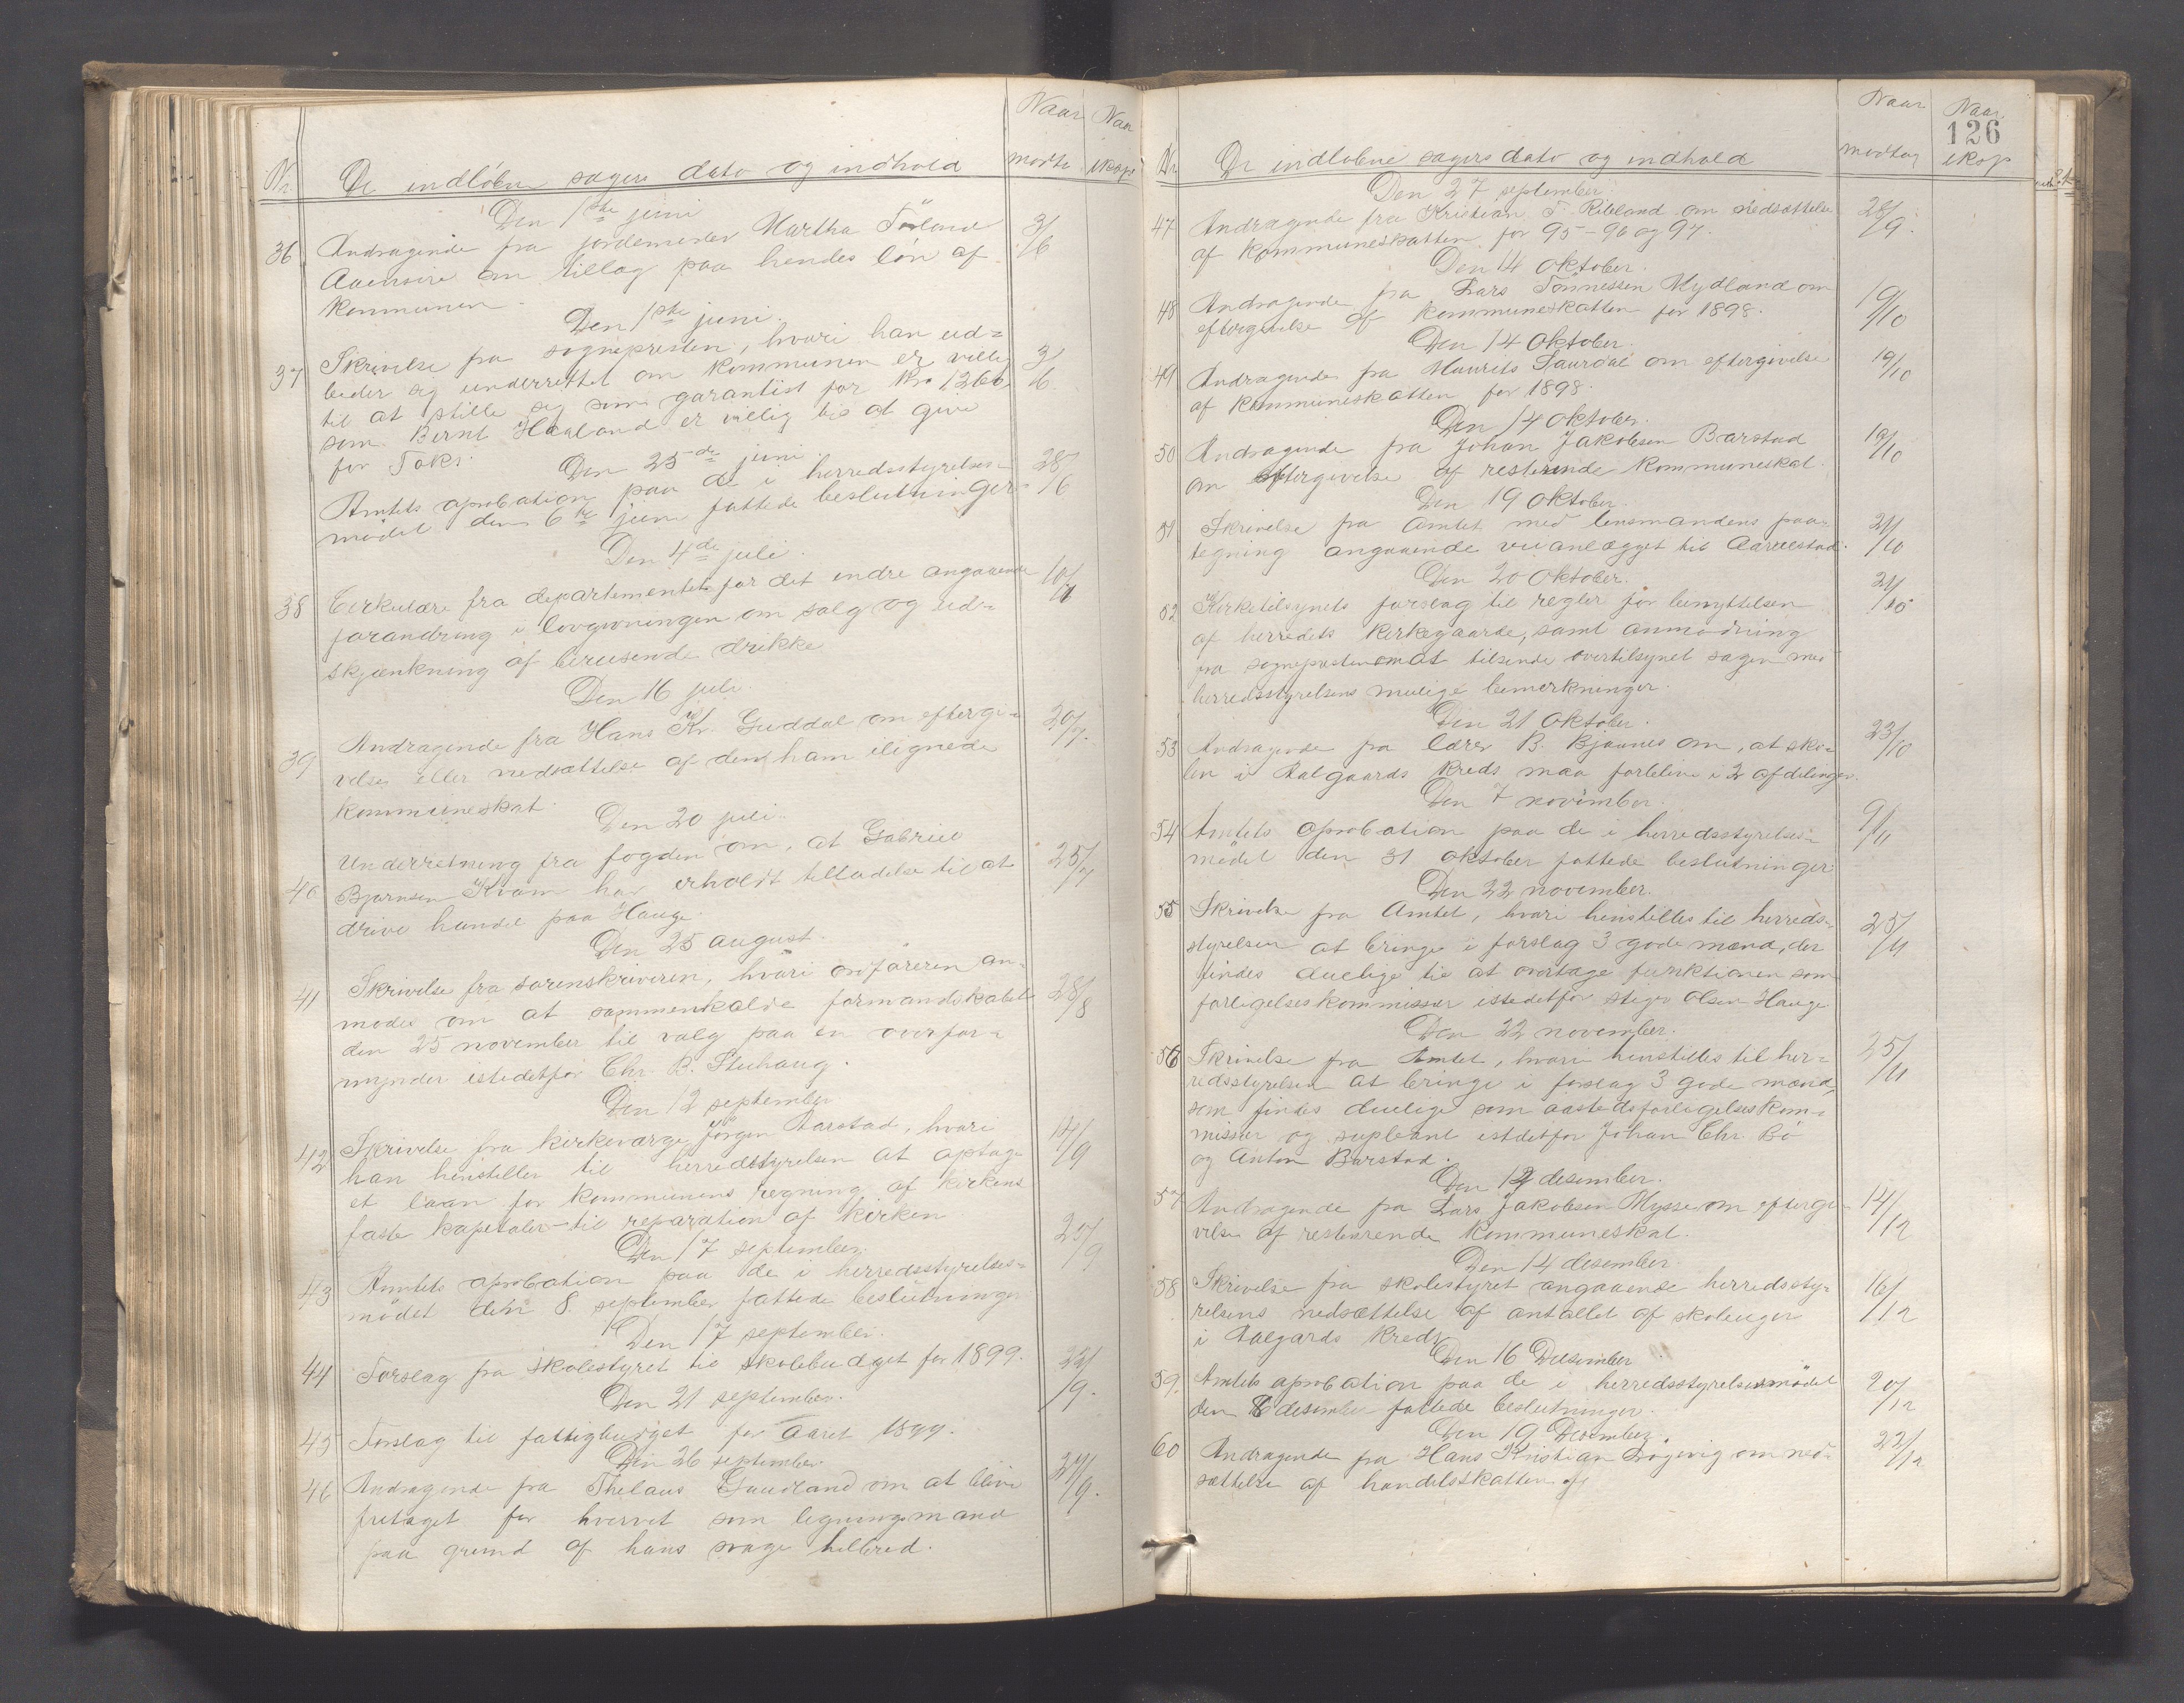 Nr De indløbne sagers dato og indhold Naar modta Naar eksp
Den 1ste juni
36 Andragende fra jordemoder Martha Tøland 3/6
Aaensire om tillæg paa hendes løn af
kommunen
Den 1ste juni.
37 Skrivelse fra sognepresten, hvori han ud= 3/6
beder sig underrettet om kommunen er villig
til at stille sig som garantist for Kr. 1260
som Bernt Haaland er villig til at give
for
Den 25de juni
Amtets aprobation paa de i herredsstyrelsen 28/6
mødet den 6te juni fattede beslutninger
Den 4de juli.
38 Cirkulære fra departementet for det indre angaaende 10/7
forandring i lovgivningen om salg og ud=
skjænkning af berusende drikke
Den 16 juli
39 Andragende fra Hans Kr. Guddal om eftergi= 20/7.
velse eller nedsættelse af den ham ilignede
kommuneskat.
Den 20 juli.
40 Underretning fra fogden om, at Gabriel 25/7
Bjørnsen Kvam har erholdt tilladelse til at
drive handel paa Hauge.
Den 25 august.
41 Skrivelse fra sorenskriveren, hvori ordføreren an= 28/8
modes om at sammenkalde formandskabet
den 25 november til valg paa en overfor=
mynder istedetfor Chr. B. Stuhaug.
Den 12 september
42 Skrivelse fra kirkeværge Jørgen Barstad, hvori 14/9
han henstiller til herredsstyrelsen at optage
et laan for kommunens regning af kirkens
faste kapitaler til reparation af kirken
Den 17 september.
43 Amtets aprobation paa de i herredsstyrelses= 20/9
mødet den 8. september fattede beslutninger
Den 17 september.
44 Forslag fra skolestyret til skolebudget for 1899. 22/9.
Den 21 september.
45 Forslag til fattigbudget for aaret 1899.
Den 26 september
46 Andragende fra Thelaus Gaudland om at blive 27/9.
fritaget for hvervet som ligningsmand
paa grund af hans svage helbred.
126
Nr De indløbne sagers dato og indhold Naar modtag Naar eksp
Den 27 september.
47 Andragende fra Kristian T. Ribland om nedsættelse 28/9.
af kommuneskatten for 95-96 og 97.
Den 14 oktober.
48 Andragende fra Lars Tønnessen Mydland om 19/10
eftergivelse af kommuneskatten for 1898.
Den 14 oktober.
49 Andragende fra Maurits Saurdal om eftergivelse 19/10
af kommuneskatten for 1898.
Den 14 oktober.
50 Andragende fra Johan Jakobsen Barstad 19/10
om eftergivelse af resterende kommuneskat.
Den 19 oktober.
51 Skrivelse fra Amtet med lensmandens paa= 21/10
tegning angaaende veianlægget til Aarrestad.
Den 20 oktober.
52 Kirketilsynets forslag til regler for benyttelsen 21/10
af herredets kirkegaarde, samt anmodning
fra sognepresten om at tilsende overtilsynet sagen med
herredsstyrelsens mulige bemerkninger.
Den 21 oktober.
53 Andragende fra lærer B. Bjaanes om, at sko= 23/10
len i Aalgaards kreds maa forblive i 2 afdelinger.
Den 7 november.
54 Amtets aprobation paa de i herredsstyrelses= 9/11
mødet den 31 oktober fattede beslutninger
Den 22 november.
55 Skrivelse fra Amtet, hvori henstilles til herreds= 25/11
styrelsen at bringe i forslag 3 gode mænd, der
findes duelige til at overtage funktionen som
forligelseskommissær istedetfor Stiger Olsen Hauge
Den 22 november.
56 Skrivelse fra Amtet, hvori henstilles til her= 25/11
redsstyrelsen at bringe i forslag 3 gode mænd,
som findes duelige som aastedsforligelseskom=
missær og supleant istdetfor Johan Chr. Bø
og Anton Barstad.
Den 12 desember.
57 Andragende fra Lars Jakobsen Mysse om eftergi= 14/12
velse af resterende kommuneskat.
Den 14 desember
58 Skrivelse fra skolestyret angaaende herredssty= 16/12
relsens nedsættelse af antallet af skoleuger
i Aalgards kreds
Den 16 Desember
59. Amtets aprobation paa de i herredsstyrelsesmødet 20/12
den 8 desember fattede beslutninger.
Den 19 Desember.
60 Andragende fra Hans Kristian Løgevig om ned= 22/12
sættelse af handelsskatten